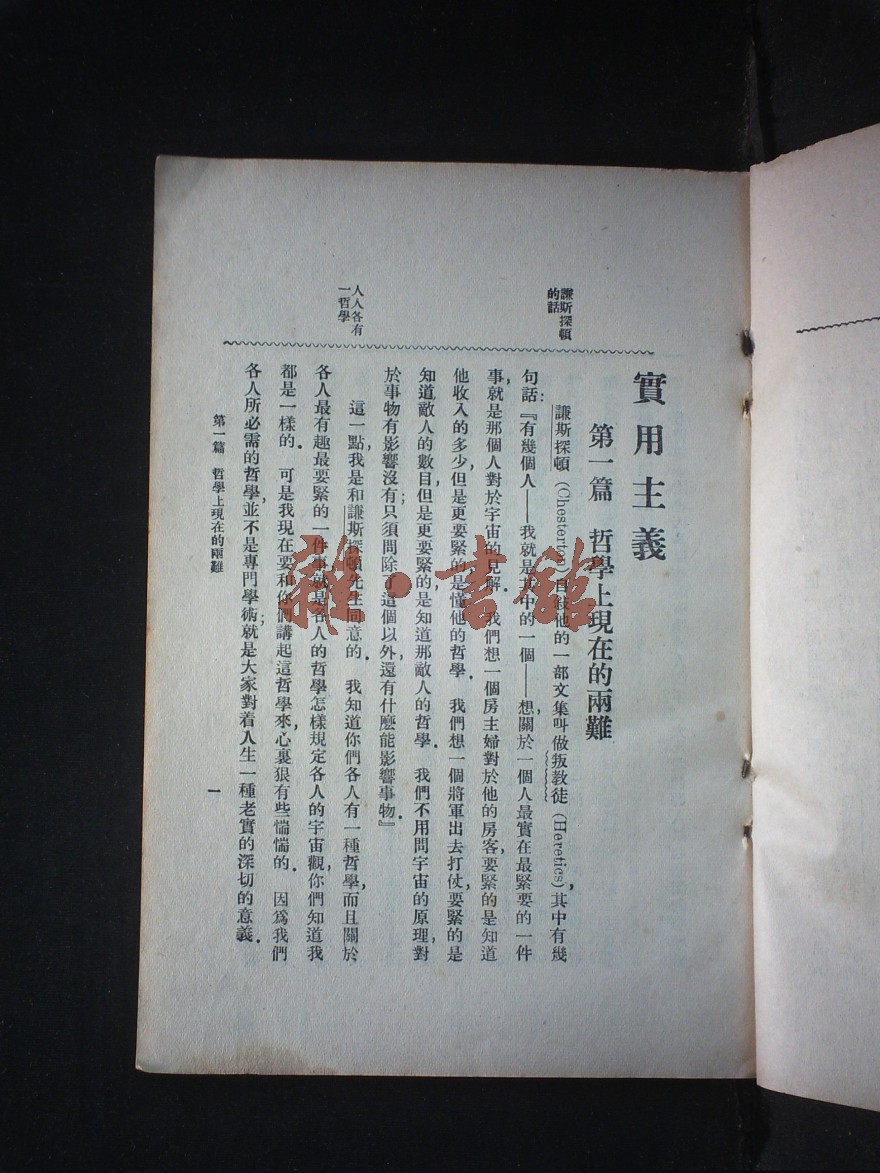 實用主義
第一篇 哲學上現在的兩難
謙斯探頓的話
謙斯探頓 (Chesterton) 自敍他的一部文集叫做叛教徒 (Heretics),其中有幾
句話:『有幾個人——我就是其中的一個——想,關於一個人最實在最緊要的一件
事,就是那個人對於宇宙的見解. 我們想一個房主婦對於他的房客,要緊的是知道
他收入的多少,但是更要緊的是懂他的哲學. 我們想一個將軍出去打仗,要緊的是
知道敵人的數目,但是更要緊的是知道那敵人的哲學. 我們不用問宇宙的原理對
於事物有影響沒有;只須問除了這個以外,還有什麽能影響事物.』
人人各有一哲學
這一點,我是和謙斯探頓先生同意的. 我知道你們各人有一種哲學,而且關於
各人最有趣最要緊的一件事就是各人的哲學怎樣規定各人的宇宙觀,你們知道我
都是一樣的. 可是我現在要和你們講起這哲學來,心裏狠有些惴惴的. 因爲我們
各人所必需的哲學,並不是專門學術;就是大家對着人生一種老實的深切的意義.
第一篇 哲學上現在的兩難
一
雜·書館